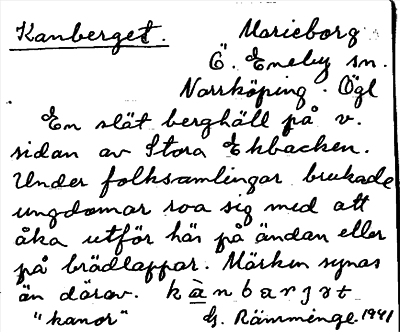 Kanberget.
Marieborg
Ö. Eneby sn.
Norrköping. Ögl
En slät berghäll på v.
sidan av Stora Ekbacken.
Under folksamlingar brukade
ungdomar roa sig med att
åka utför här på ändan eller
på brädlappar. Märken synas
än därav. kànbarjət
"kanor" G. Rämminge. 1941